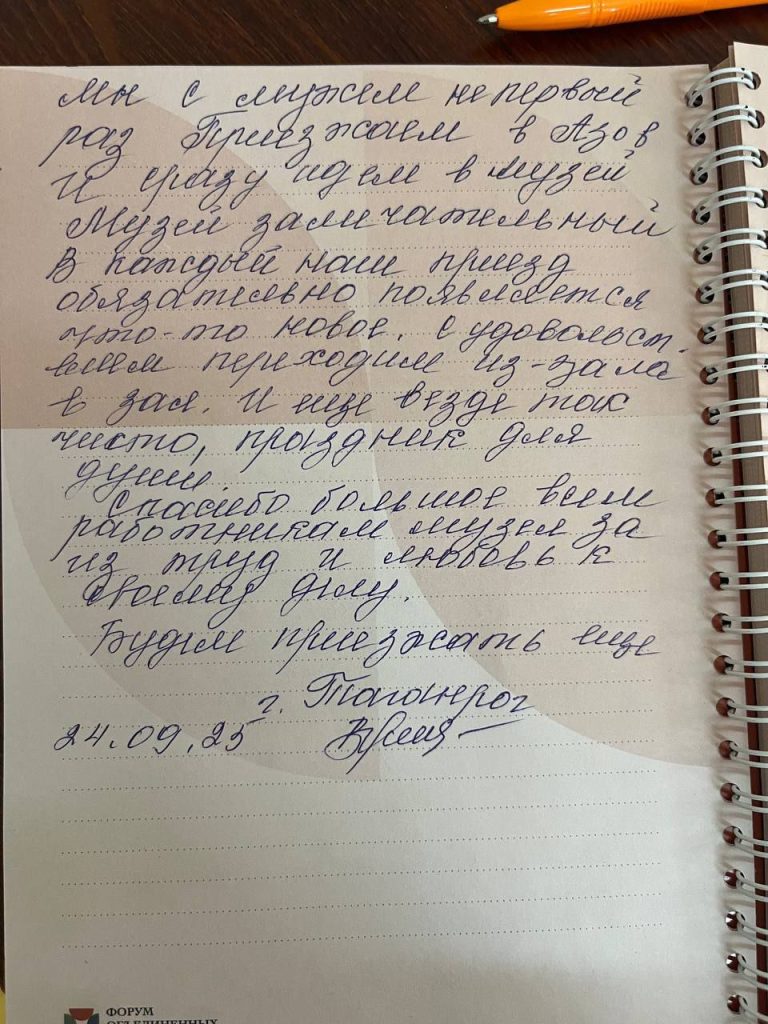 Мы с мужем не первый
раз Приезжаем в Азов
И сразу идем в музей
Музей замечательный
В каждый наш приезд
обязательно появляется
что-то новое. С удовольст-
вием переходим из-зала
в зал. И еще везде так
чисто, праздник для
души.
Спасибо большое всем
работникам музея за
их труд и любовь к
своему делу.
Будем приезжать еще
г. Таганрог
24.09.25
ФОРУМ
ОБЪЕДИНЕННЫХ